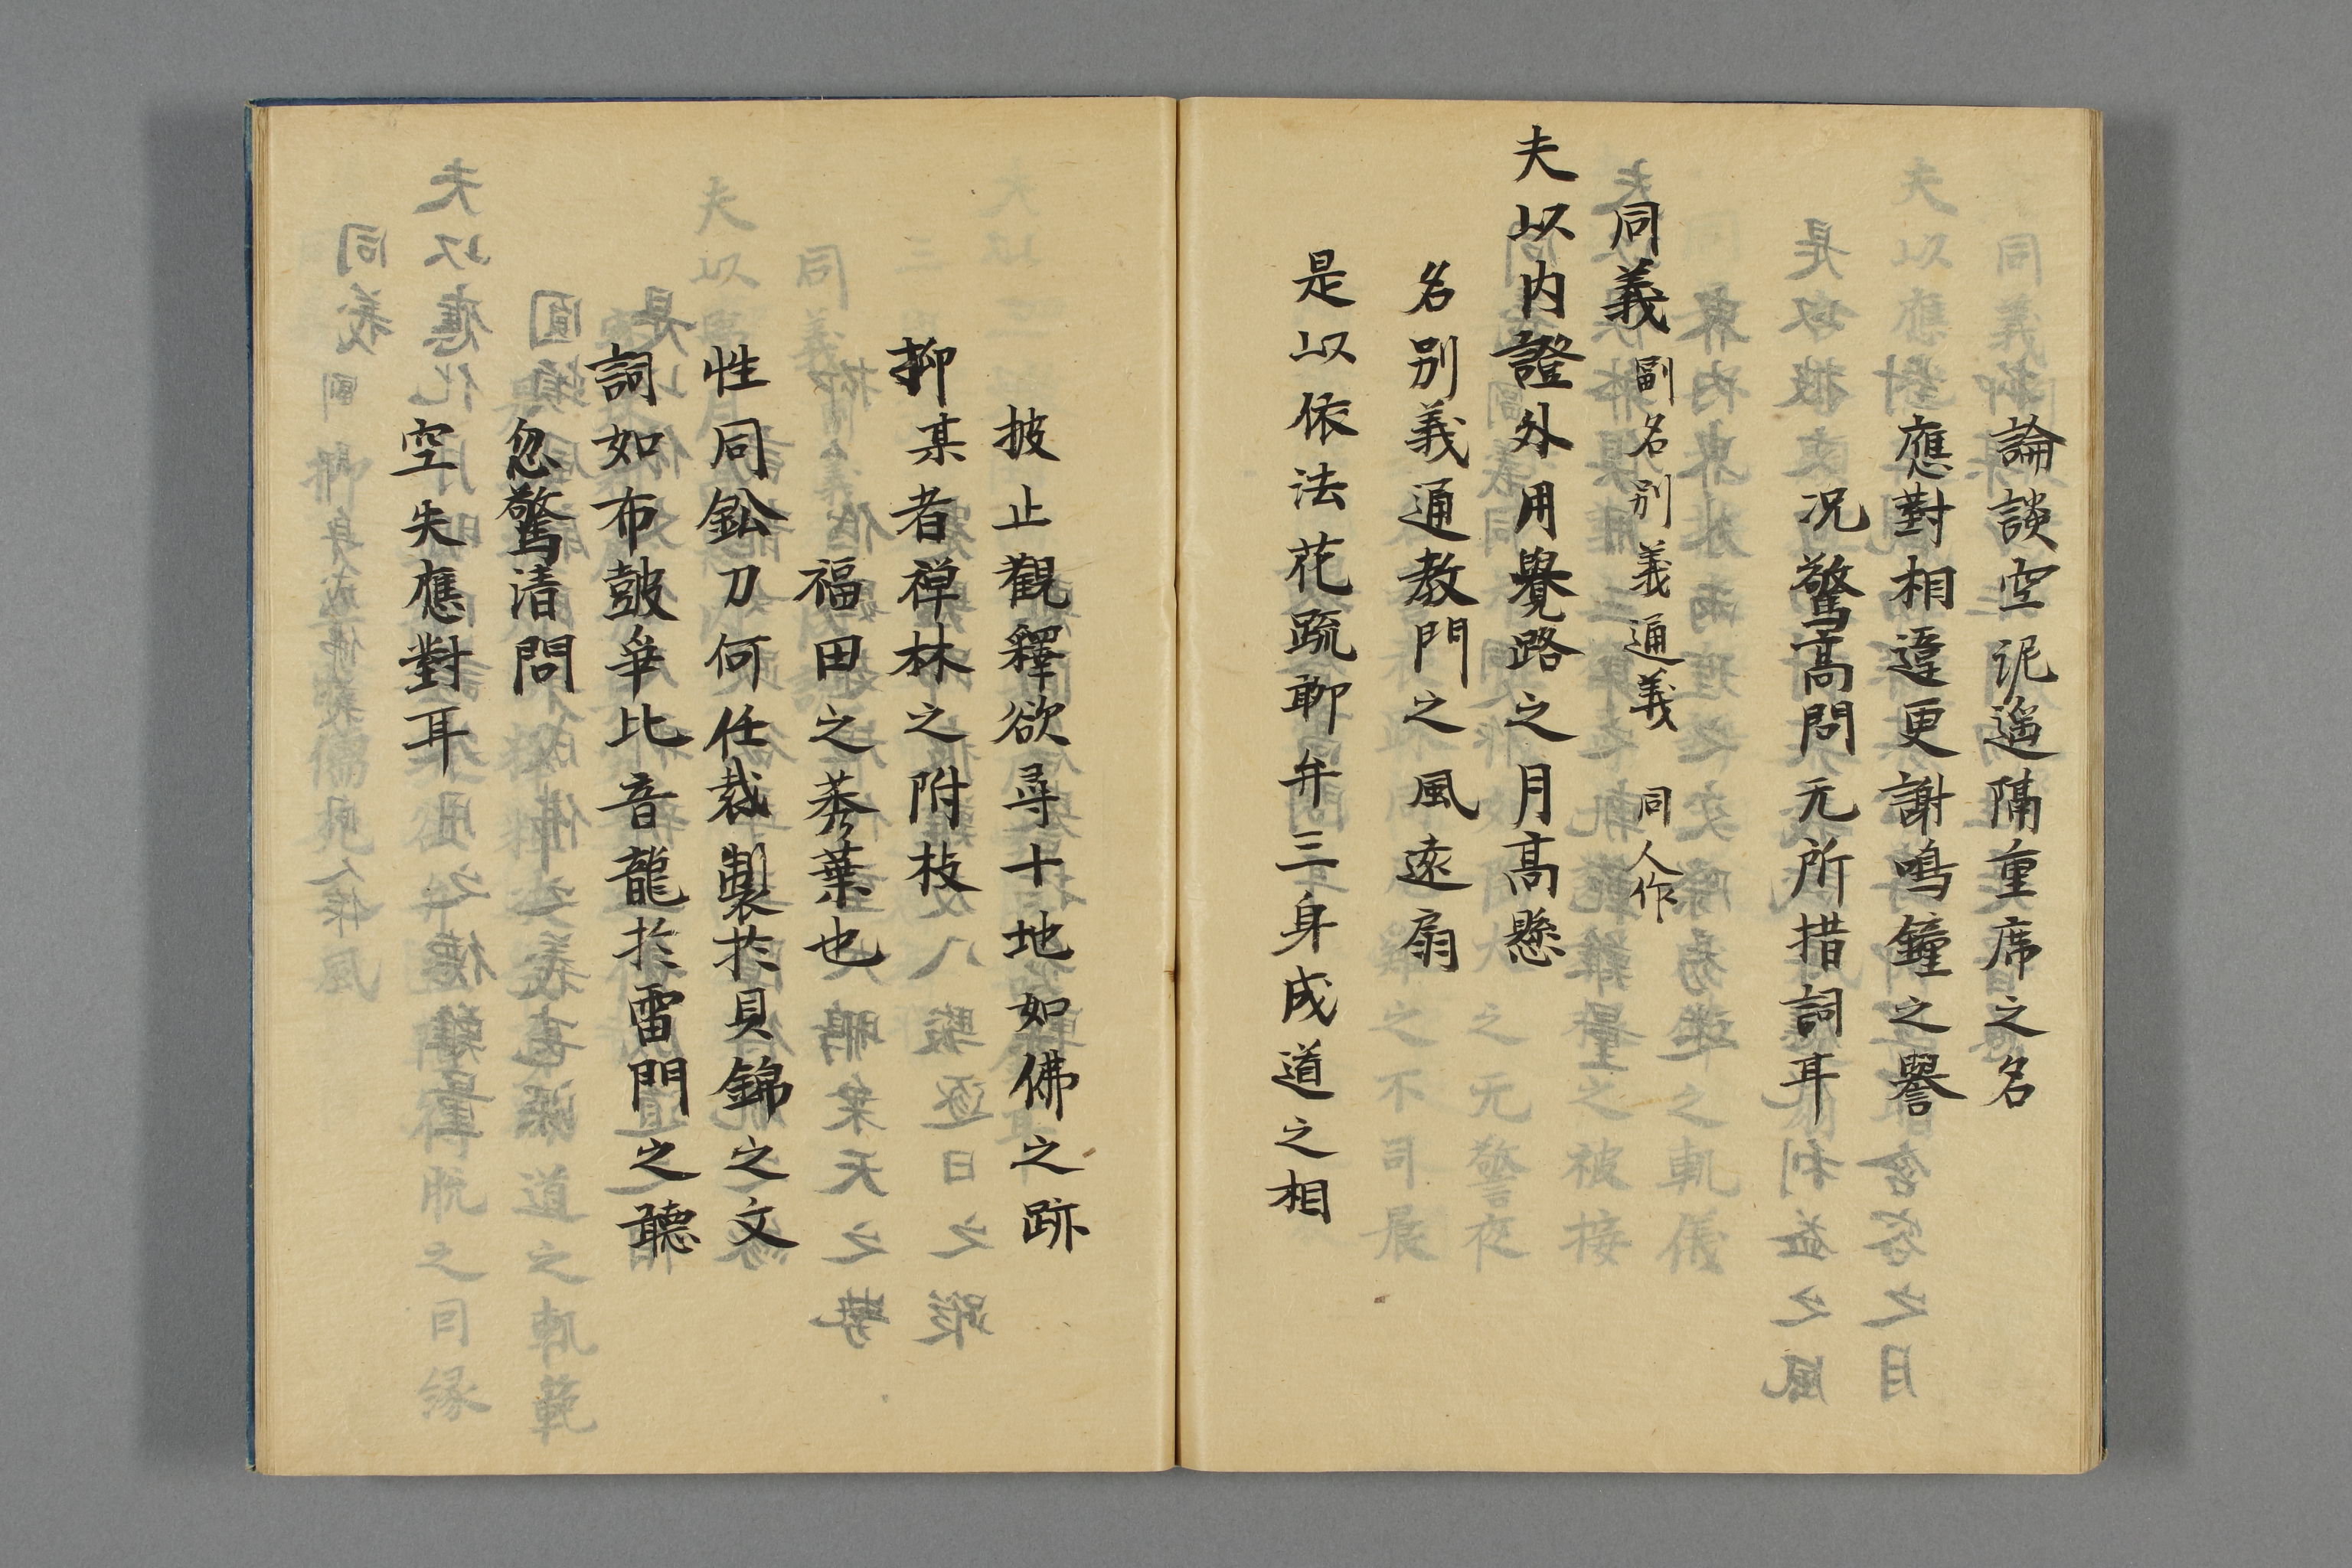 論談空泥遥隔重席之名
應對相違更謝鳴鐘之譽
况驚高問元所措詞耳
同義副名別義通義 同人作
夫以内證外用覺路之月高懸
名別義通教門之風遠扇
是以依法花疏聊弁三身成道之相
披止觀釋欲尋十地如佛之跡
抑某者禅林之附枝
福田之莠葉也
性同鈆刀何任裁製於貝錦之文
詞如布皷争比音龍於雷門之聽
忽驚清問
空失應對耳